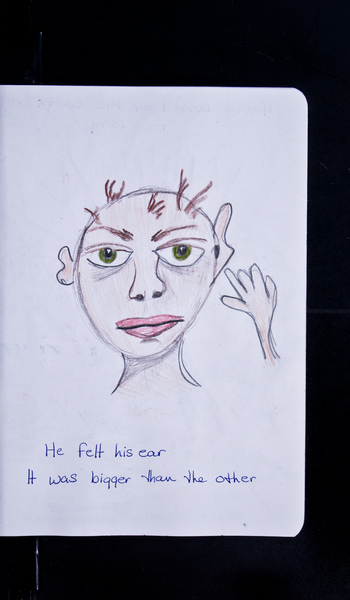 He felt his ear
It was bigger than the other